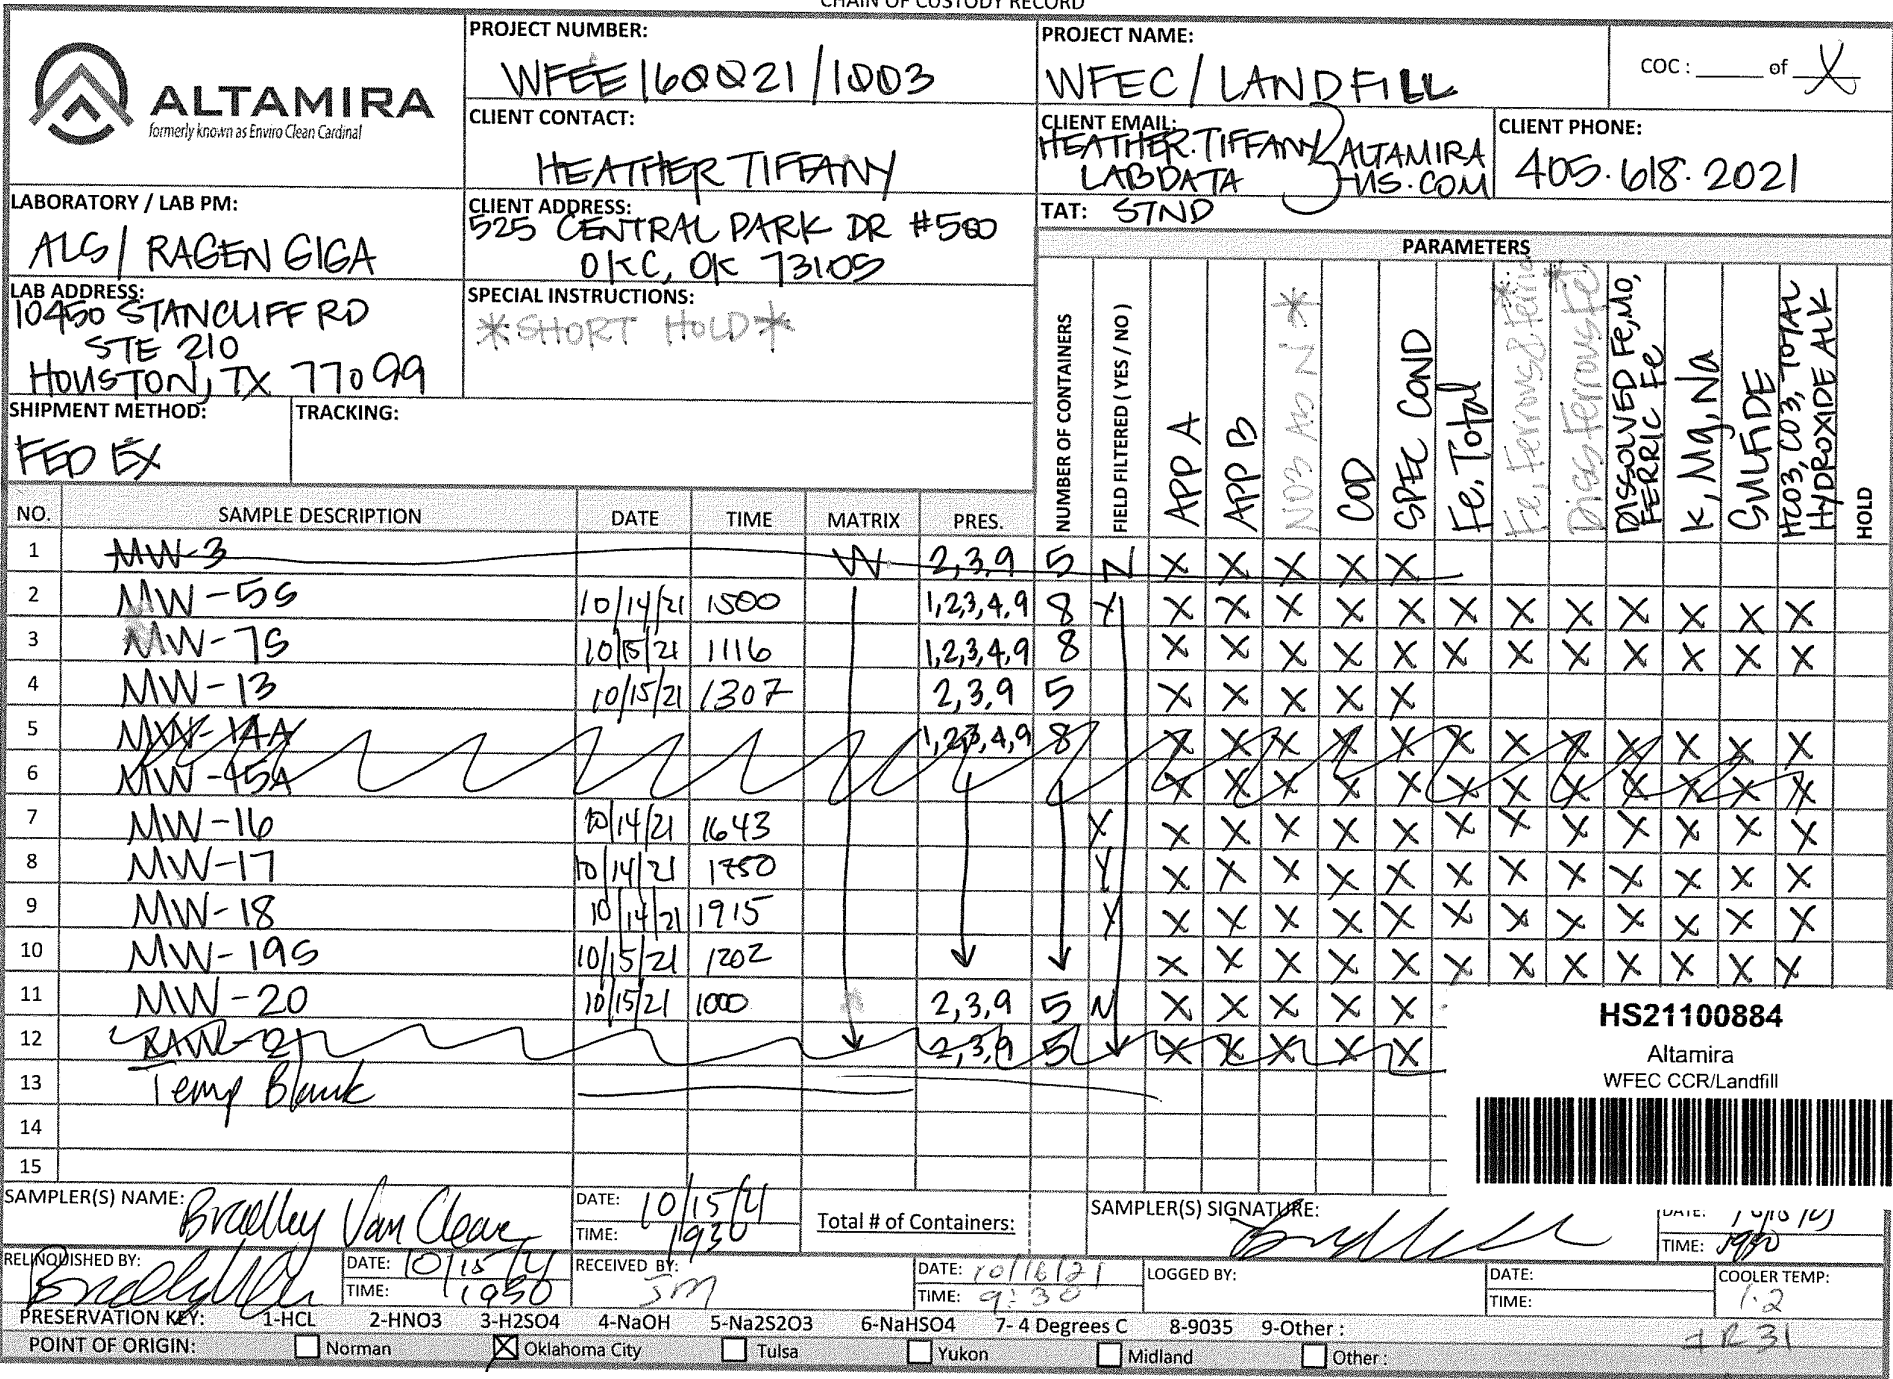 CHAIN OF CUSTODY RECORD
ALTAMIRA
formerly known as Enviro Clean Cardinal
PROJECT NUMBER:
WFEE160021/1003
PROJECT NAME:
WFEC/LANDFILL
COC : ____ of X
CLIENT CONTACT:
HEATHER TIFFANY
CLIENT EMAIL:
HEATHER.TIFFANY
LABDATA
ALTAMIRA
-US.COM
CLIENT PHONE:
405.618.2021
LABORATORY / LAB PM:
ALS / RAGEN GIGA
CLIENT ADDRESS:
525 CENTRAL PARK DR #500
OKC, OK 73105
TAT: STND
PARAMETERS
LAB ADDRESS:
10450 STANCLIFF RD
STE 210
HOUSTON, TX 77099
SPECIAL INSTRUCTIONS:
*SHORT HOLD*
SHIPMENT METHOD:
FED EX
TRACKING:
NUMBER OF CONTAINERS
FIELD FILTERED ( YES / NO )
APP A
APP B
NO3 AS N*
COD
SPEC COND
Fe, Total
Fe, Ferrous & Ferric*
Diss Ferrous Fe*
DISSOLVED Fe, Mo,
FERRIC Fe
K, Mg, Na
SULFIDE
HCO3, CO3, TOTAL
HYDROXIDE ALK
HOLD
NO. SAMPLE DESCRIPTION DATE TIME MATRIX PRES.
1 MW-3 W 2,3,9 5 N X X X X X
2 MW-5S 10/14/21 1500 1,2,3,4,9 8 Y X X X X X X X X X X X X
3 MW-7S 10/15/21 1116 1,2,3,4,9 8 X X X X X X X X X X X X
4 MW-13 10/15/21 1307 2,3,9 5 X X X X X
5 MW-14A 1,2,3,4,9 8 X X X X X X X X X X X X
6 MW-15A X X X X X X X X X X X X
7 MW-16 10/14/21 1643 Y X X X X X X X X X X X X
8 MW-17 10/14/21 1750 Y X X X X X X X X X X X X
9 MW-18 10/14/21 1915 Y X X X X X X X X X X X X
10 MW-19S 10/15/21 1202 X X X X X X X X X X X X
11 MW-20 10/15/21 1000 2,3,9 5 N X X X X X
12 2,3,9 5 X X X X X
13 Temp Blank
14
15
HS21100884
Altamira
WFEC CCR/Landfill
SAMPLER(S) NAME: Bradley Van Cleave
DATE: 10/15/21
TIME: 1930
Total # of Containers:
SAMPLER(S) SIGNATURE:
DATE:
TIME: 1930
RELINQUISHED BY:
DATE: 10/15/21
TIME: 1930
RECEIVED BY:
JM
DATE: 10/16/21
TIME: 9:30
LOGGED BY:
DATE:
TIME:
COOLER TEMP:
1.2
PRESERVATION KEY: 1-HCL 2-HNO3 3-H2SO4 4-NaOH 5-Na2S2O3 6-NaHSO4 7- 4 Degrees C 8-9035 9-Other :
IR31
POINT OF ORIGIN: Norman Oklahoma City Tulsa Yukon Midland Other :